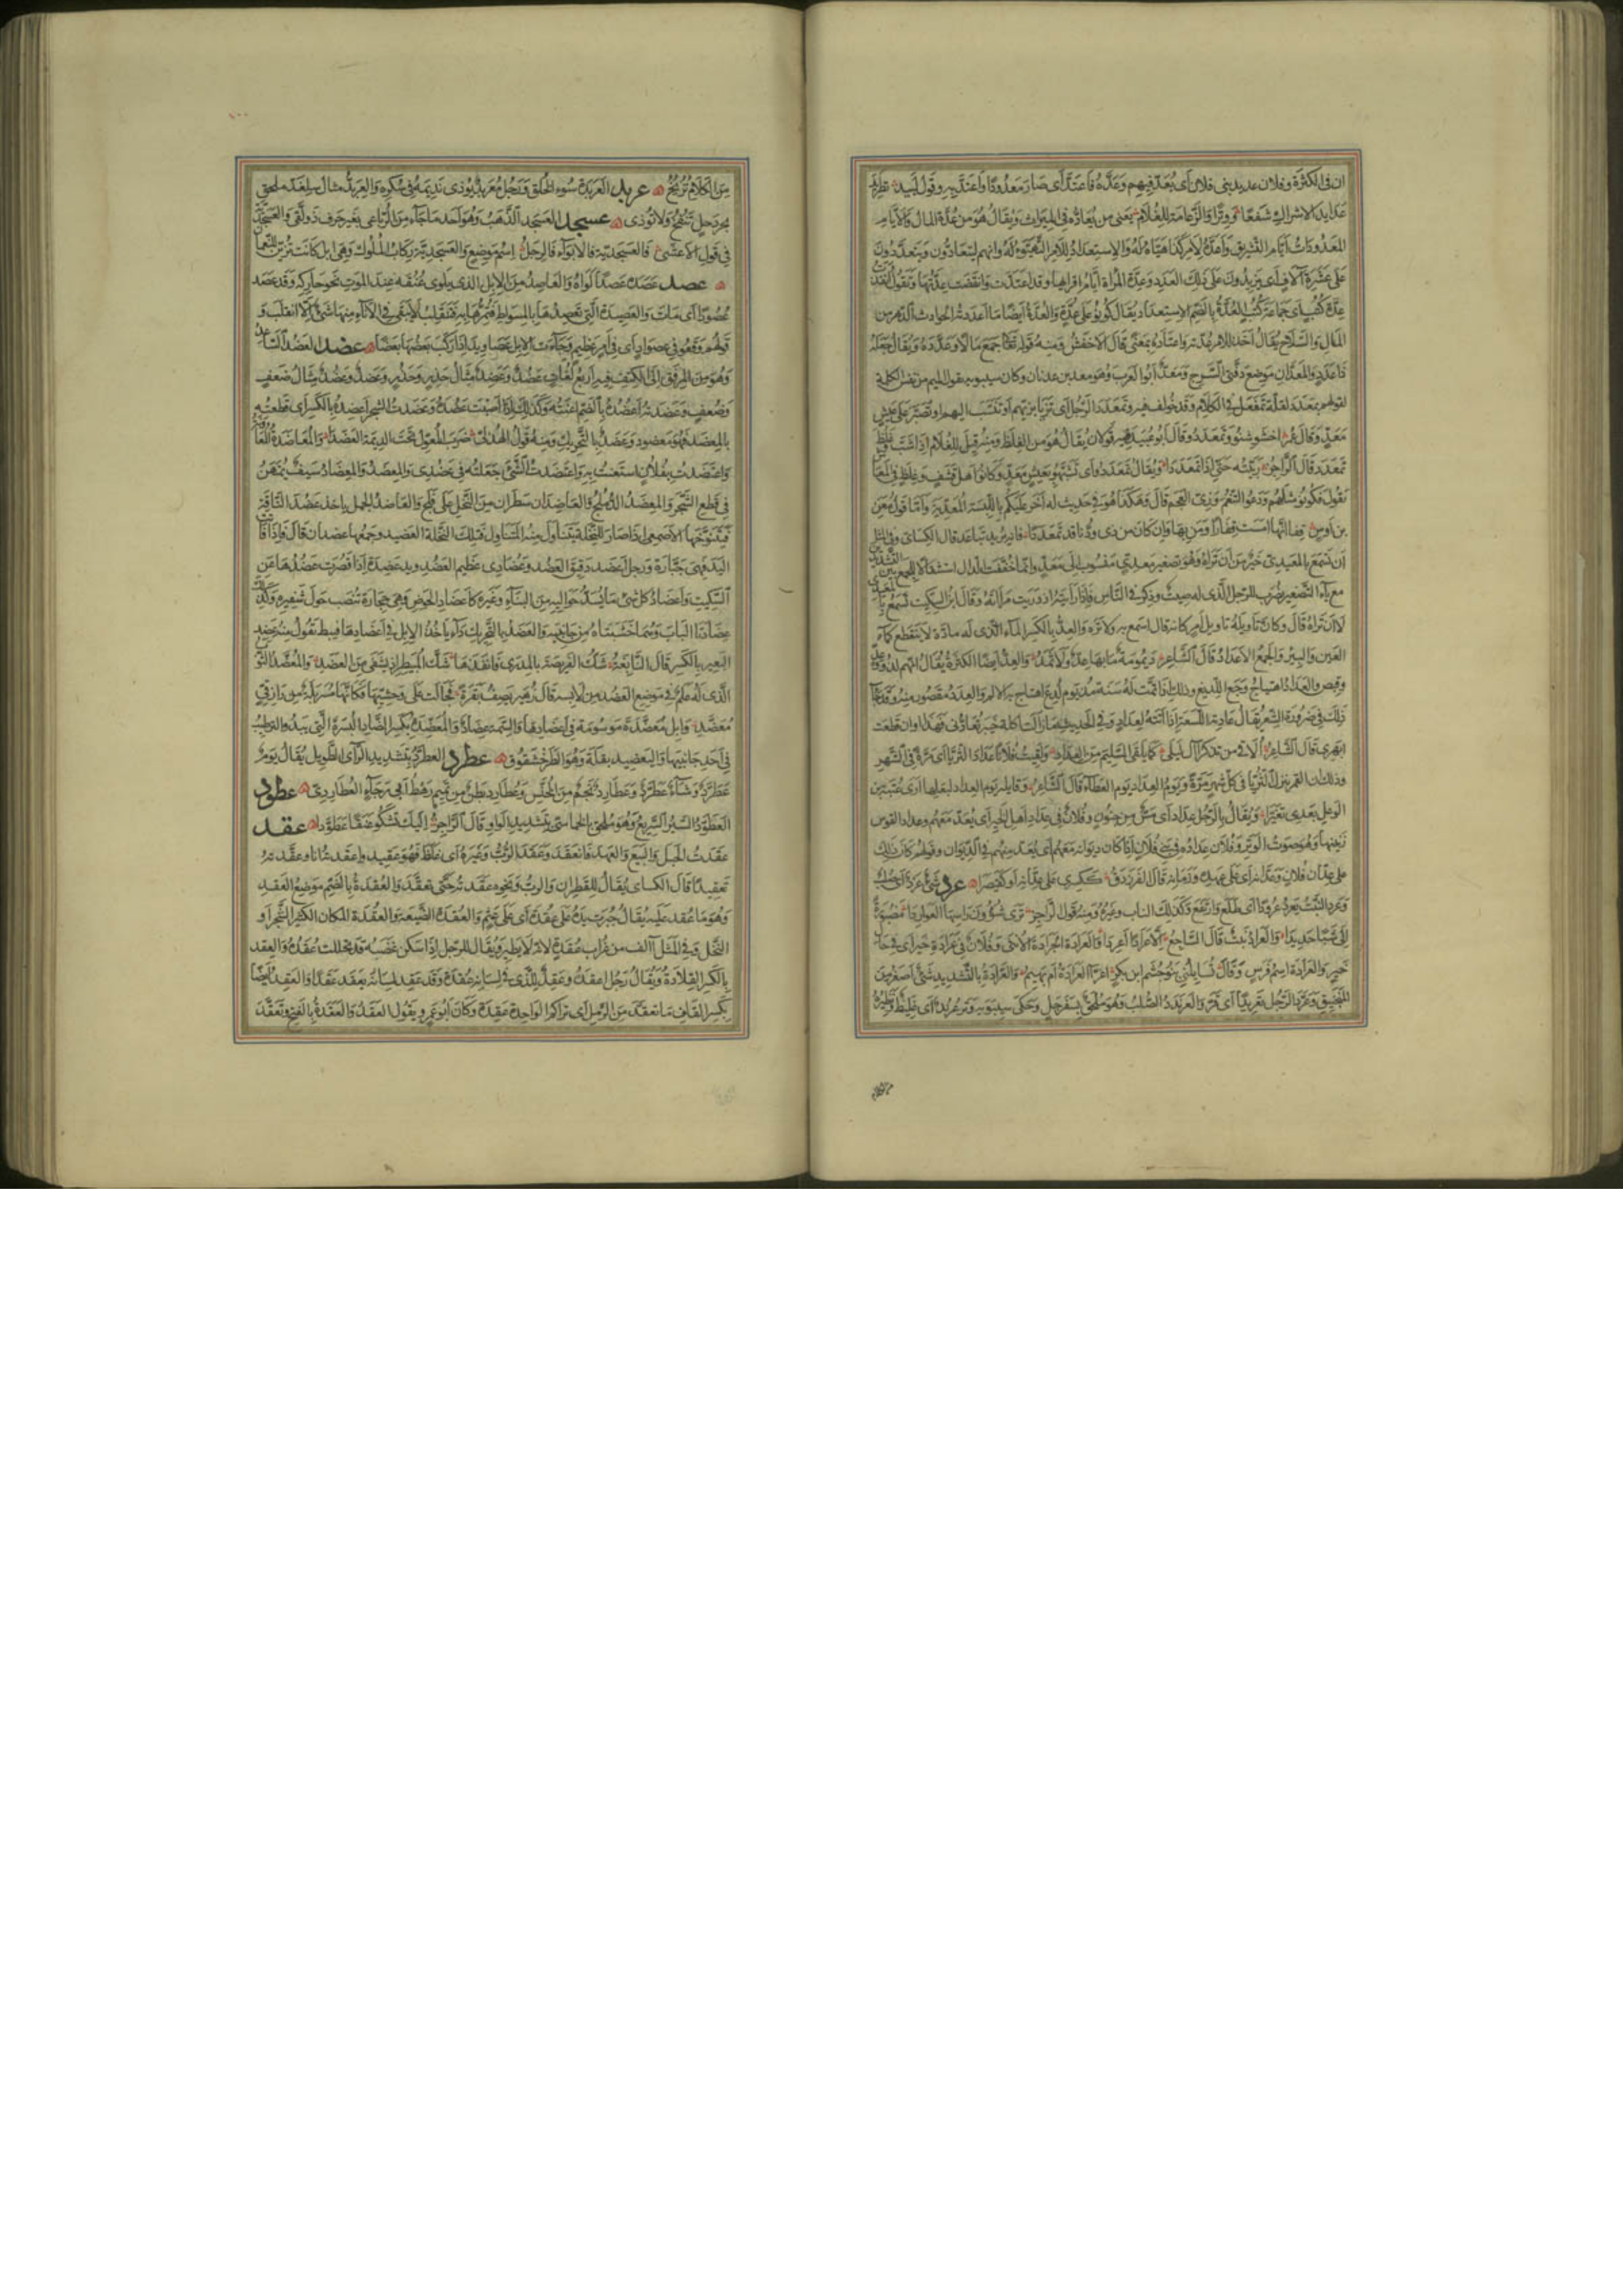 ان فى الكثرة وفلان عديد بنى فلان اى يعد فيهم وعده فاعتد اى صار معدودا واعتد به وقول لبيد تطير
عدايد الاشراك شفعا ووترا والزعامة للغلام يعنى من يعاده فى الميراث ويقال هو من عدة المال والايام
المعدودات ايام التشريق واعده لامر كذا هياه له والاستعداد للامر التهيؤ له وانهم ليتعادون ويتعددون
على عشرة آلاف اى يزيدون على ذلك العدد وعدة المراة ايام اقرائها وقد اعتدت وانقضت عدتها وتقول انفذت
عدة كتب اى جماعة كتب والعدة بالضم الاستعداد يقال كونوا على عدة والعدة ايضا ما اعددته لحوادث الدهر من
المال والسلاح يقال اخذ للامر عدته وعتاده بمعنى قال الاخفش ومنه قوله تعالى جمع مالا وعدده ويقال جعله
ذا عدد والمعدان موضع دفتى السرج ومعد ابو العرب وهو معد بن عدنان وكان سيبويه يقول الميم من نفس الكلمة
لقولهم تمعدد لقلة تمفعل فى الكلام وقد خولف فيه وتمعدد الرجل اى تزيا بزيهم او تنسب اليهم او تصبر على عيش
معد وقال عمر اخشوشنوا وتمعددوا قال ابو عبيد فيه قولان يقال هو من الغلظ ومنه قيل للغلام اذا شب وغلظ
تمعدد قال الراجز ربيته حتى اذا تمعددا ويقال تمعددوا اى تشبهوا بعيش معد وكانوا اهل قشف وغلظ فى المعاش
يقول فكونوا مثلهم ودعوا التنعم وزى العجم قال وهكذا هو فى حديث له آخر عليكم باللبسة المعدية واما قول معن
بن اوس قفا انها امست قفارا ومن بها وان كان من ذى ودنا قد تمعددا فانه يريد تباعد قال الكسائى وفى المثل
ان تسمع بالمعيدى خير من ان تراه وهو تصغير معدى منسوب الى معد وانما خففت الدال استثقالا للجمع بين التشديدتين
مع ياء التصغير يضرب للرجل الذى له صيت وذكر فى الناس فاذا رايته ازدريت مرآته وقال ابن السكيت تسمع بالمعيدى
لا ان تراه قال وكان تاويله تاويل امر كانه قال اسمع به ولا تره والعد بالكسر الماء الذى له مادة لا تنقطع كماء
العين والبير والجمع الاعداد قال الشاعر ديمومة ما بها عد ولا ثمد والعد ايضا الكثرة يقال انهم لذوو عد
وقبص والعداد اهتياج وجع اللديغ وذلك اذا تمت له سنة مذ يوم لدغ اهتاج به الالم والعدد مقصور منه وقد جاء
ذلك فى ضرورة الشعر يقال عادته اللسعة اذا اتته لعداد وفى الحديث ما زالت اكلة خيبر تعادنى فهذا اوان قطعت
ابهرى قال الشاعر الاقى من تذكر آل ليلى كما يلقى السليم من العداد ولقيت فلانا عداد الثريا اى مرة فى الشهر
وذلك ان القمر ينزل الثريا فى كل شهر مرة ويوم العداد يوم العطاء قال الشاعر وقائلة يوم العداد لبعلها ارى عتبة بن
الوعل بعدى تغيرا ويقال بالرجل عداد اى مس من جنون وفلان فى عداد اهل الخير اى يعد معهم وعداد القوس
رنينها وهو صوت الوتر وفلان عداده فى بنى فلان اذا كان ديوانه معهم اى يعد منهم فى الديوان وقولهم كان ذلك
على عدان فلان وعدانه اى على عهده وزمانه قال الفرزدق ككسرى على عدانه او كقيصرا عرد شئ عرد اى صلب
وعرد النبت يعرد عرودا اى طلع وارتفع وكذلك الناب وغيره ومنه قول الراجز ترى شؤون راسها العواردا مضبورة
الى شبا حدايدا والعراد نبت قال الساجع الا عرادا عردا والعرادة الجرادة الانثى وفلان فى عرادة خير اى فى حال
خير والعرادة اسم فرس وقال تسايلنى بنو جشم ابن بكر اغراء العرادة ام بهيم والعرادة بالتشديد شئ اصغر من
المنجنيق وعرد الرجل تعريدا اى فر والعرندد الصلب وهو ملحق بسفرجل وحكى سيبويه وتر عرند اى غليظ ونظيره
من الكلام ترنج عربد العربدة سوء الخلق ورجل معربد يوذى نديمه فى سكره والعربد مثال سلغد ملحق
بجردحل تنفخ ولا توذى عسجد العسجد الذهب وهو احد ما جاء من الرباعى بغير حرف ذولقى والعسجدية
فى قول الاعشى فالعسجدية فالابواء فالرجل اسم موضع والعسجدية ركاب الملوك وهى ابل كانت تزين للنعمان
عصد عصده عصدا لواه والعاصد من الابل الذى يلوى عنقه عند الموت نحو حاركه وقد عصد
عصودا اى مات والعصيدة التى تعصدها بالمسواط فتمرها به فتنقلب لا يبقى فى الاناء منها شئ الا انقلب و
قولهم وقعوا فى عصواد اى فى امر عظيم وجاءت الابل عصاويد اذا ركب بعضها بعضا عضد العضد الساعد
وهو من المرفق الى الكتف فيه اربع لغات عضد وعضد مثال حذر وحذر وعضد وعضد مثال ضعف
وضعف وعضدته اعضده بالضم اعنته وكذلك اذا اصبت عضده وعضدت الشجر اعضده بالكسر اى قطعته
بالمعضد فهو معضود وعضد بالتحريك ومنه قول الهذلى ضرب المعول تحت الديمة العضدا والمعاضدة المعاونة
واعتضدت بفلان استعنت به واعتضدت الشئ جعلته فى عضدى والمعضد والمعضاد سيف يمتهن
فى قطع الشجر والمعضد الدملج والعاضدان سطران من النخل على فلج والعاضد الجمل ياخذ عضد الناقة
فيتنوخها الاصمعى اذا صار للنخلة جذع يتناول منه المتناول فتلك النخلة العضيد وجمعها عضدان قال فاذا فاتت
اليد فهى جبارة ورجل اعضد دقيق العضد وعضادى عظيم العضد ويد عضدة اذا قصرت عضدها عن
السكيت واعضاد كل شئ ما يسد حواليه من البناء وغيره كاعضاد الحوض وهى حجارة تنصب حول شفيره وكذلك
عضادتا الباب وهما خشبتاه من جانبيه والعضد بالتحريك داء ياخذ الابل فى اعضادها فيبط تقول منه عضد
البعير بالكسر قال النابغة شك الفريصة بالمدرى فانفذها شك المبيطر اذ يشفى من العضد والمعضد الثوب
الذى له علم فى موضع العضد من لابسه قال زهير يصف بقرة فجالت على وحشيها وكانها مسربلة من رازقى
معضد وابل معضدة موسومة فى اعضادها والسمة عضاد والمعضدة بكسر الضاد البسرة التى يبدو الترطيب
فى احد جانبيها واليعضيد بقلة وهو الطرخشقوق عطرد العطرد بتشديد الراء الطويل يقال يوم
عطرد وشأو عطرد وعطارد نجم من الخنس وعطارد بطن من تميم رهط ابى رجاء العطاردى عطود
العطود السير السريع وهو ملحق بالخماسى بتشديد الواو قال الراجز اليك نشكو عنقا عطودا عقد
عقدت الحبل والبيع والعهد فانعقد وعقد الرب وغيره اى غلظ فهو عقيد واعقدته انا وعقدته
تعقيدا قال الكساى يقال للقطران والرب ونحوه عقدته حتى تعقد والعقدة بالضم موضع العقد
وهو ما عقد عليه يقال جبرت يده على عقدة اى على عثم والعقدة الضيعة والعقدة المكان الكثير الشجر او
النخل وفى المثل آلف من غراب عقدة لانه لا يطير ويقال للرجل اذا سكن غضبه قد تحللت عقده والعقد
بالكسر القلادة ويقال رجل اعقد وعقد للذى فى لسانه عقدة وقد عقد لسانه يعقد عقدا والعقد ايضا
بكسر القاف ما تعقد من الرمل اى تراكم الواحدة عقدة وكان ابو عمرو يقول العقد والعقدة بالفتح وتعقد